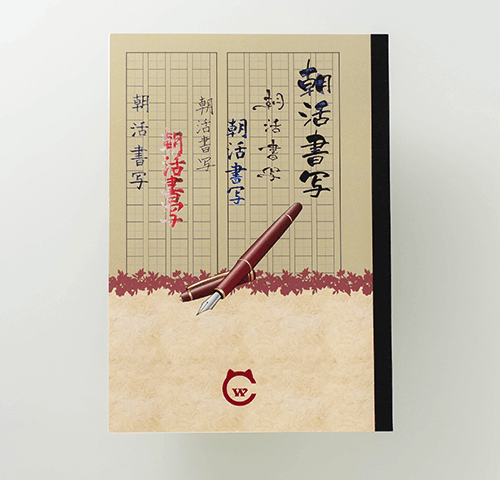 朝活書写
朝活書写
朝活書写
朝活書写
朝活書写
朝活書写
CW